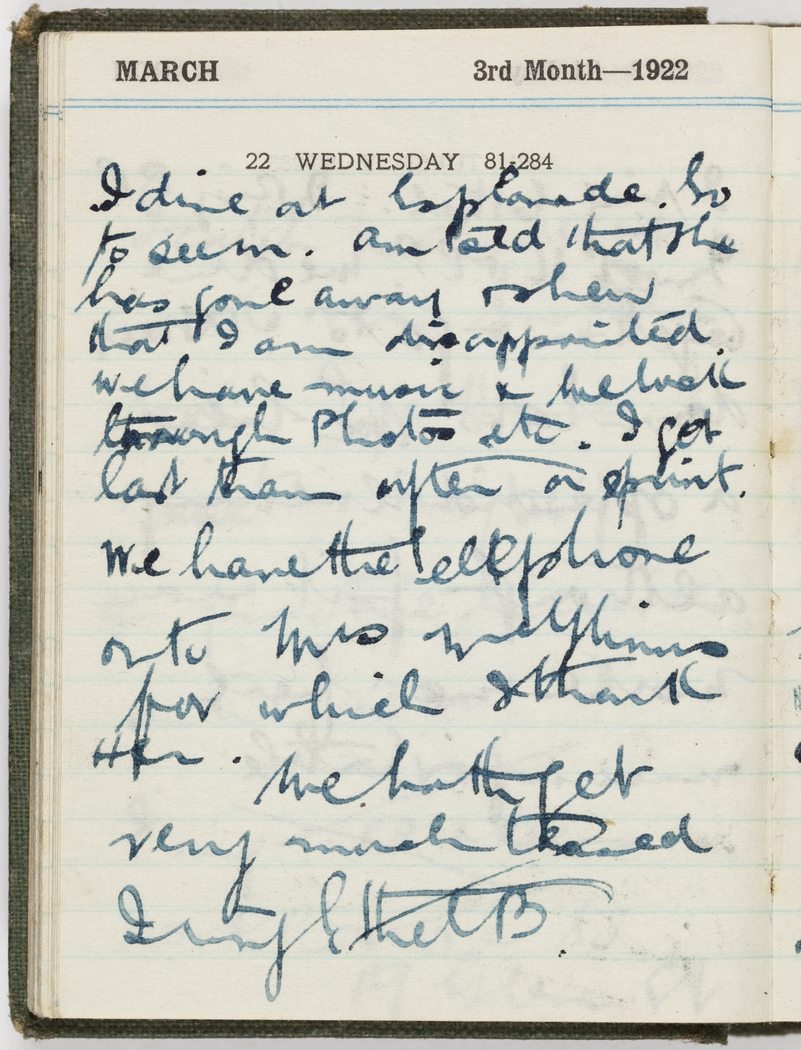 MARCH 3rd Month—1922
22 WEDNESDAY 81-284
I dine at Esplanade. Go
to seem. am told that she
has gone away & shew
that I am disappointed.
We have music & we look
through Photos etc. I get
last tram after a sprint.
We have the telephone
on to Mrs
for which I thank
Her.
We both get
very much teased
I ring Ethel B.